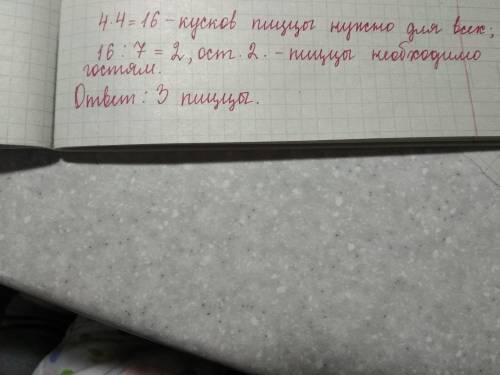 4·4=16 - кусков пиццы нужно для всех;
16 : 7 = 2, ост. 2. - пиццы необходимо
гостям.
Ответ: 3 пиццы.